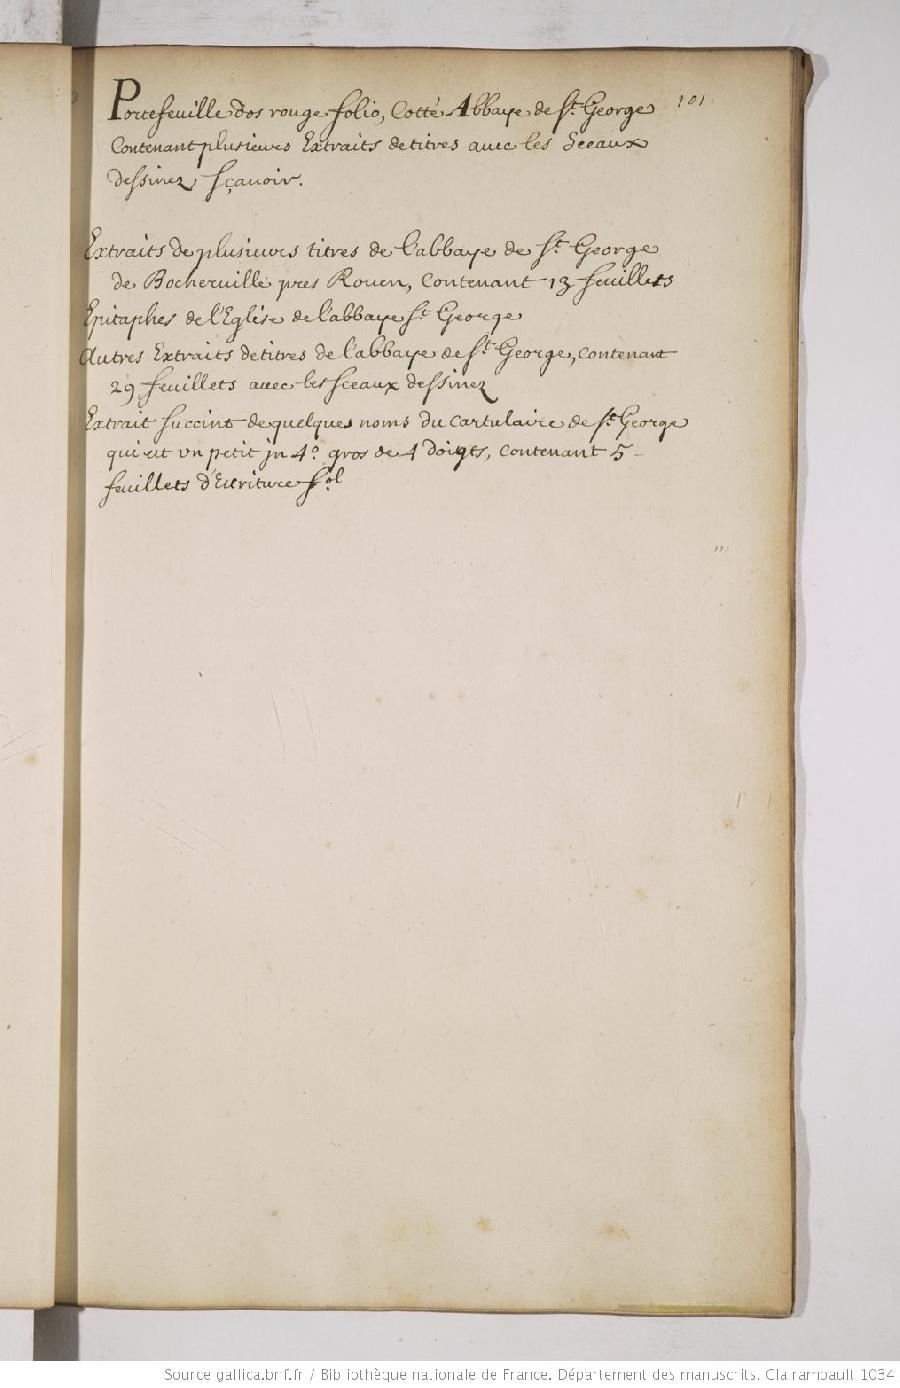 Portefeuille dos rouge folio, Cotté Abbaye de St. George 101.
Contenant plusieurs Extraits de titres avec les Sceaux
dessinez sçavoir.
Extraits de plusieurs titres de l'abbaye de St. George
de Bocherville pres Rouen, Contenant 13 feuillets
Epitaphes de l'Eglise de l'abbaye St. George
Autres Extraits de titres de l'abbaye de St. George, contenant
29 feuillets avec les sceaux dessinez
Extrait succint de quelques noms du cartulaire de St. George
qui est un petit in 4º. gros de 4 doigts, contenant 5
feuillets d'Ecriture fol
Source gallica.bnf.fr / Bibliothèque nationale de France. Département des manuscrits. Clairambault 1034